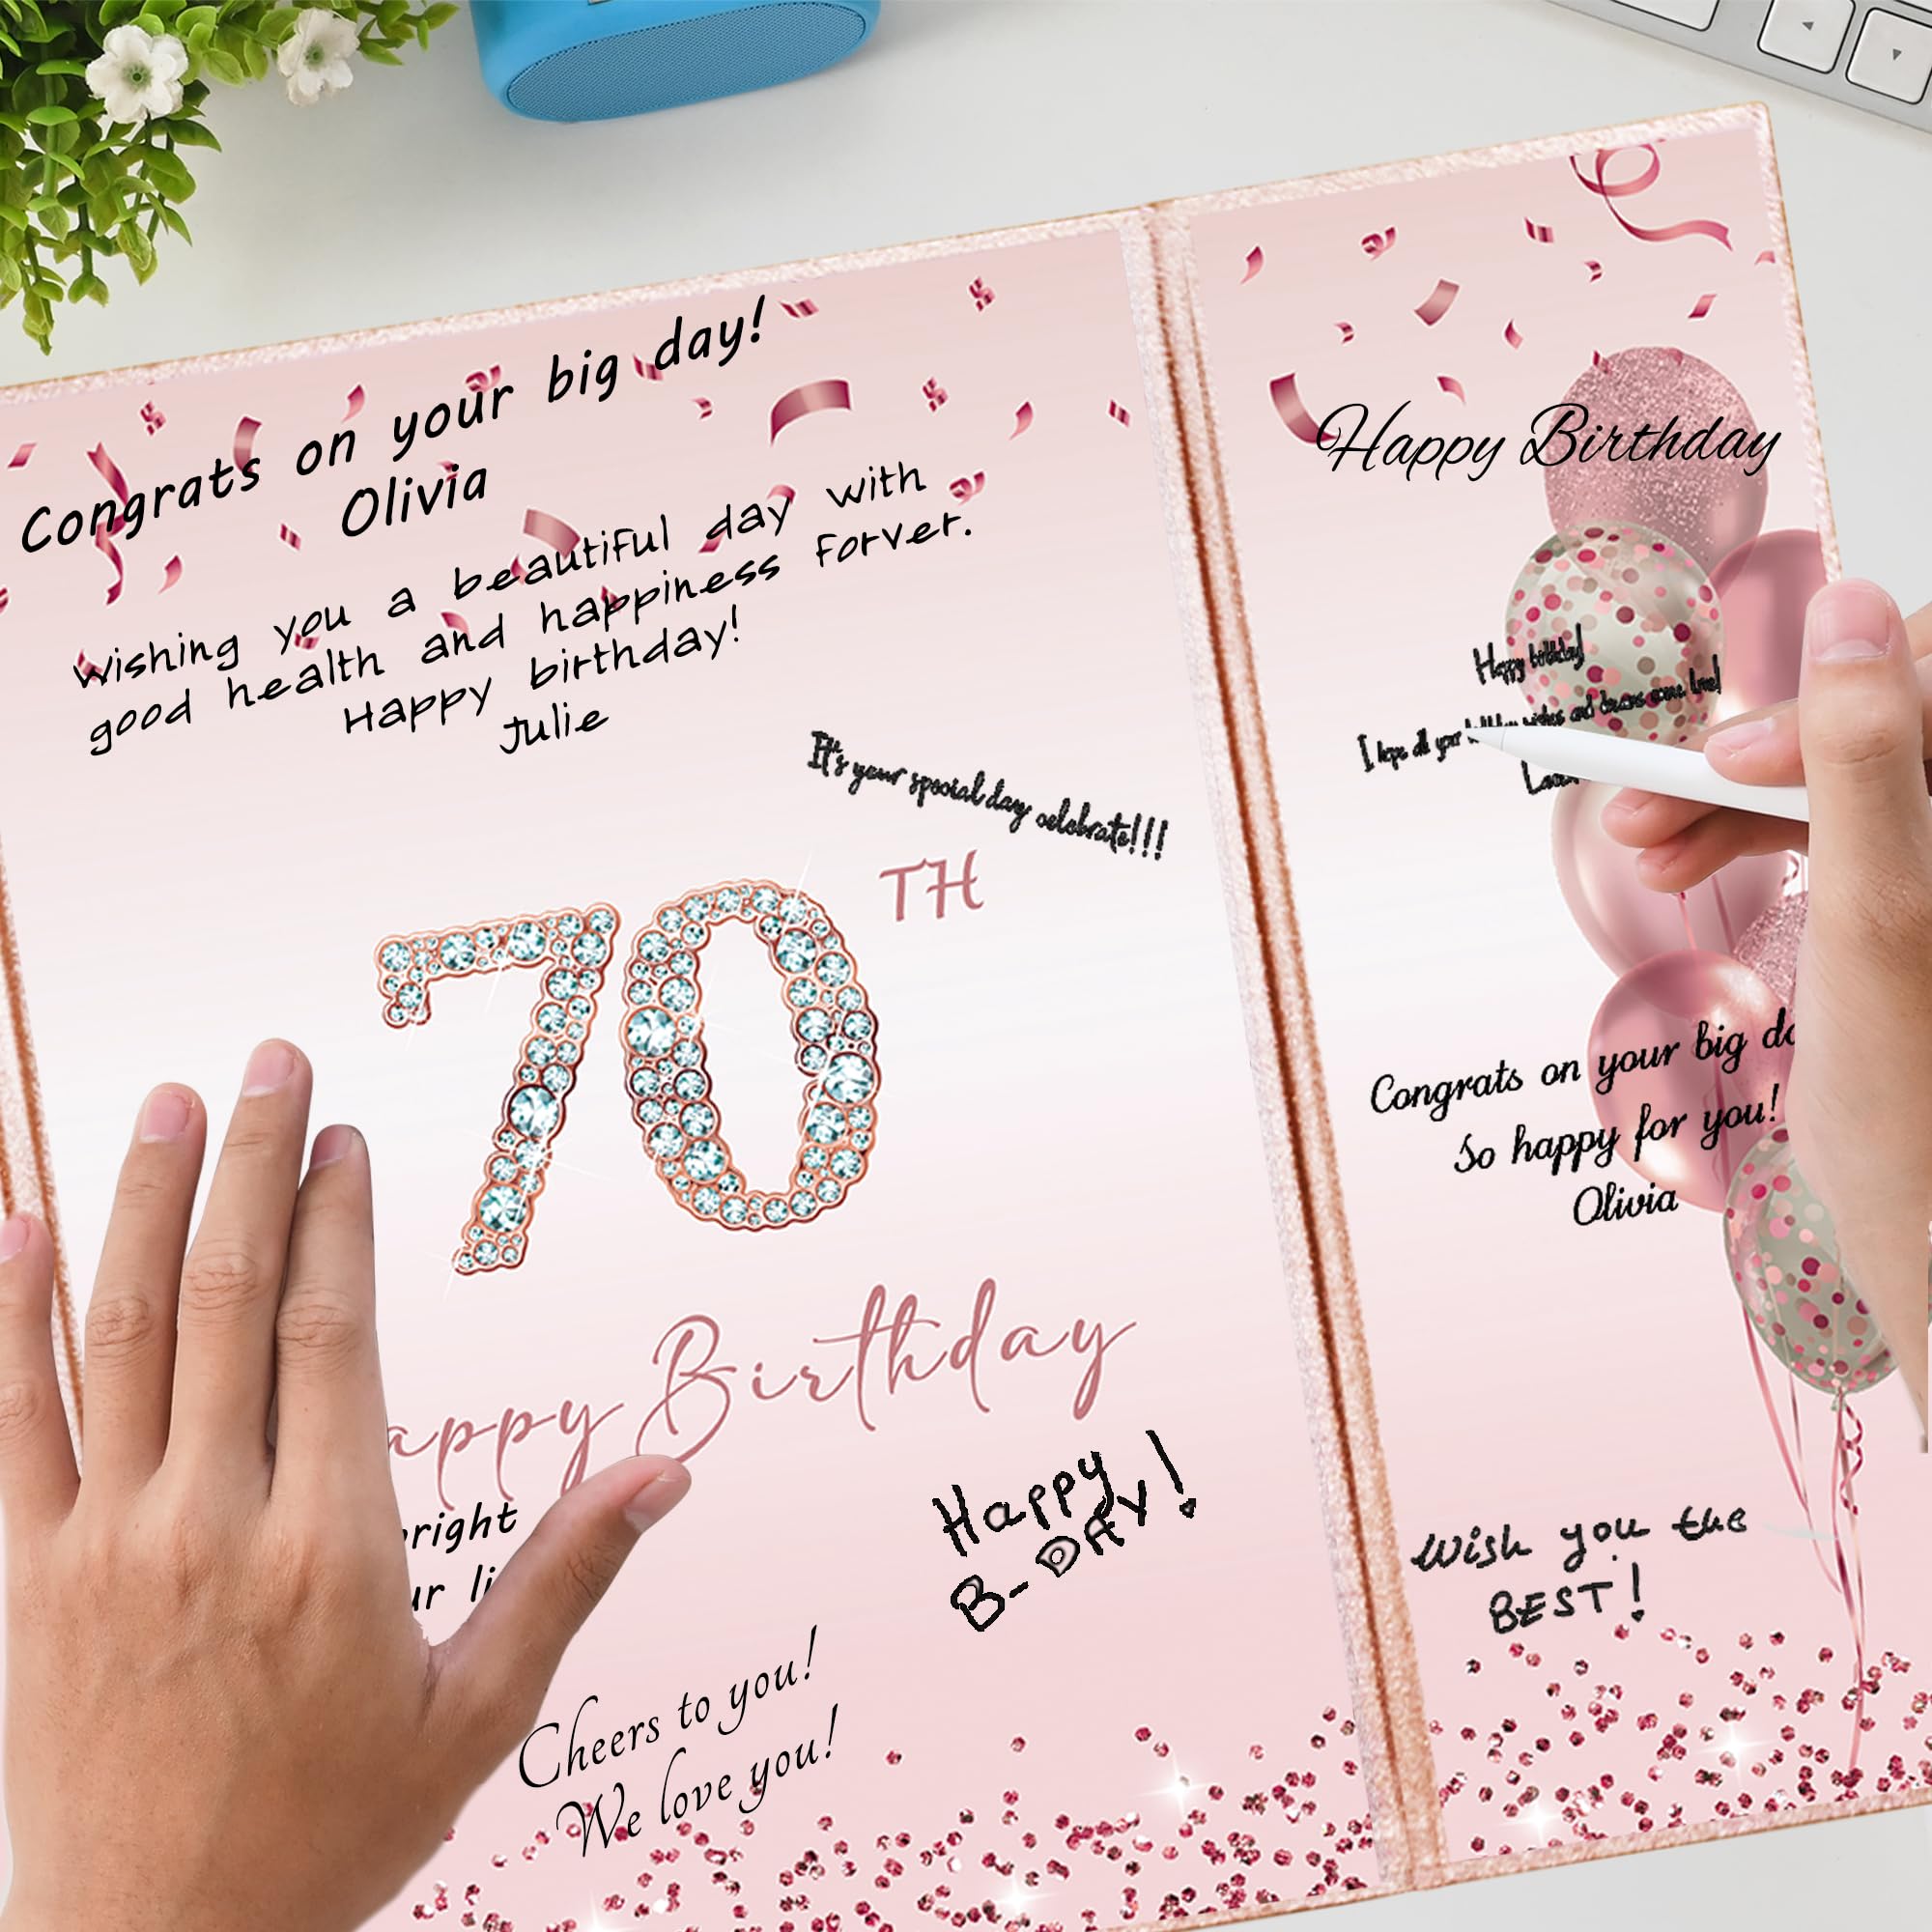 Congrats on your big day!
Olivia
Wishing you a beautiful day with
good health and happiness Forver.
Happy birthday!
Julie
It's your special day celebrate!!!
70 TH
appy Birthday
right
ur li
Cheers to you!
We love you!
Happy
B-DAY!
Happy Birthday
Happy birthday!
I hope all your wishes and dreams come true!
Congrats on your big da
So happy for you!
Olivia
Wish you the
BEST!